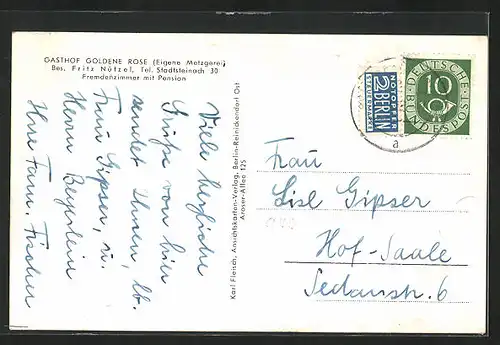 GASTHOF GOLDENE ROSE (Eigene Metzgerei)
Bes. Fritz Nützel, Tel. Stadtsteinach 30
Fremdenzimmer mit Pension
Viele herzliche
Grüße von hier
sendet Ihnen, lb.
Frau Gipser, u.
Herrn Beyerlein
Ihre Fam. Fischer
Karl Fleisch, Ansichtskarten-Verlag, Berlin-Reinickendorf Ost
Aroser-Allee 125
NOTOPFER
2 BERLIN
STEUERMARKE
DEUTSCHE
BUNDESPOST
10
a
Frau
Lisl Gipser
Hof-Saale
Sedanstr. 6